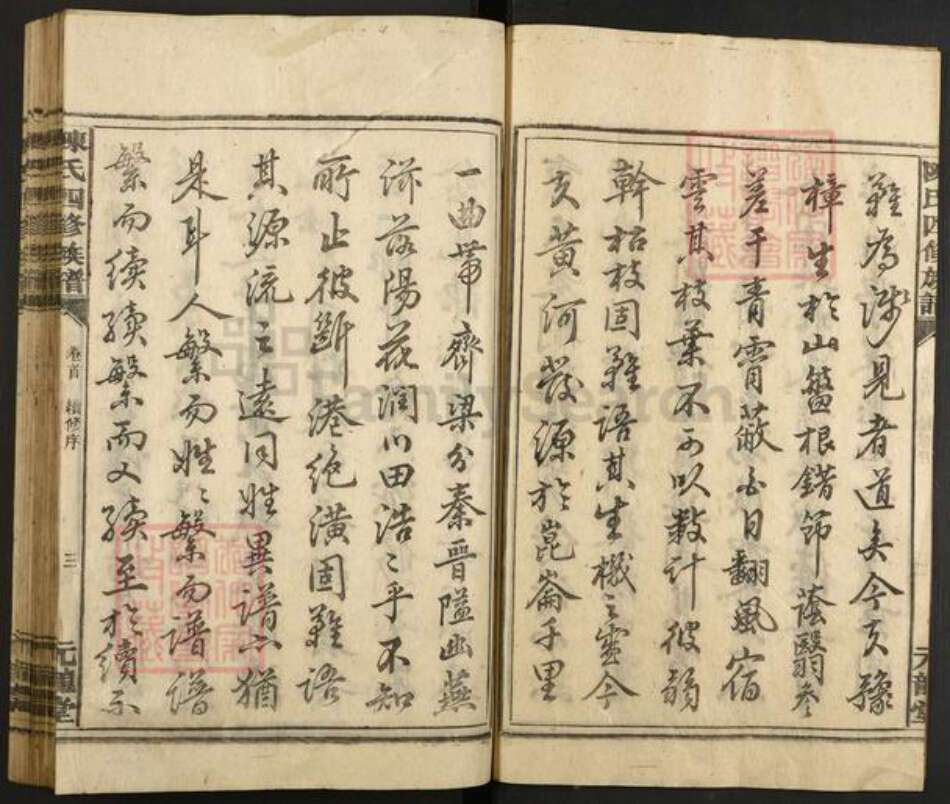 難為淺見者道矣今夫豫
樟生於山盤根錯節蔭翳參
差干青霄蔽白日翻風宿
雲其枝葉不可以數計彼弱
幹枯枝固難語其生機之靈今
夫黃河發源於崑崙千里
一曲帶齊梁分秦晉隘幽燕
浴洛陽花潤川田浩〻乎不知
所止彼斷港絕潢固難語
其源流之遠同姓異譜亦猶
是耳人繁而姓〻繁而譜譜
繁而續續繁而又續至於續而
陳氏四修族譜
卷首 續修序
三
元龍堂
陳氏四修族譜
元龍堂
FamilySearch